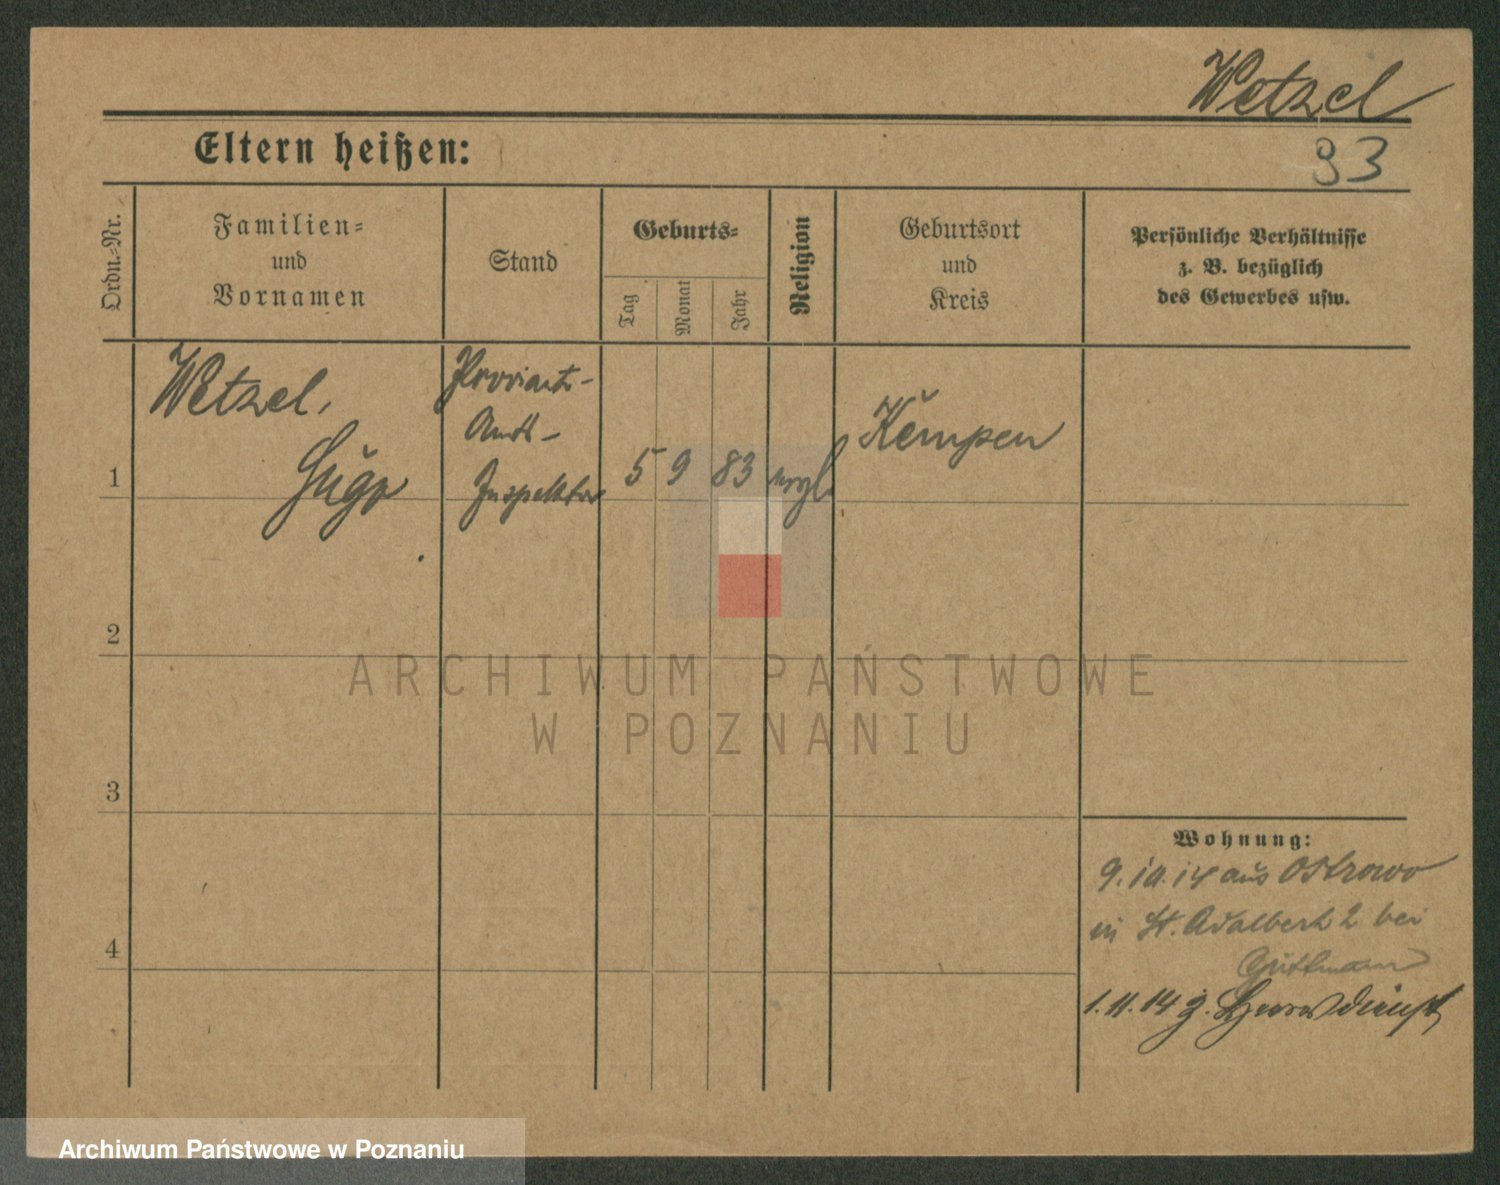 Wetzel
93
Eltern heißen:
Ordn.-Nr.
Familien-
und
Vornamen
Stand
Geburts-
Tag
Monat
Jahr
Religion
Geburtsort
und
Kreis
Persönliche Verhältnisse
z. B. bezüglich
des Gewerbes usw.
1
Wetzel,
Hugo
Proviant-
Amts-
Inspektor
5 9 83 evgl.
Kempen
2
3
4
Wohnung:
9.10.14 aus Ostrowo
in St. Adalbert 2 bei
Güttmann
1.11.14 z. Heeresdienst
ARCHIWUM PAŃSTWOWE
W POZNANIU
Archiwum Państwowe w Poznaniu